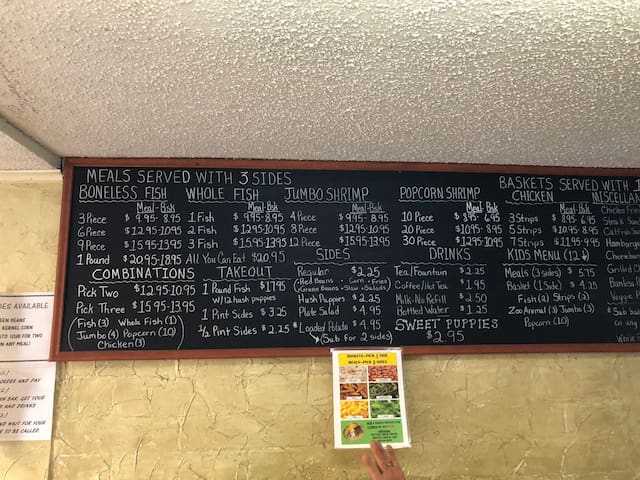 MEALS SERVED WITH 3 SIDES
BONELESS FISH
Meal-Bsk
3 Piece $ 9.95-8.95
6 Piece $12.95-10.95
9 Piece $15.95-13.95
1 Pound $20.95-18.95
WHOLE FISH
Meal-Bsk
1 Fish $ 9.95-8.95
2 Fish $12.95-10.95
3 Fish $15.95-13.95
All You Can Eat $20.95
JUMBO SHRIMP
Meal-Bsk
4 Piece $ 9.95-8.95
8 Piece $12.95-10.95
12 Piece $15.95-13.95
POPCORN SHRIMP
Meal-Bsk
10 Piece $ 8.95-6.95
20 Piece $10.95-8.95
30 Piece $12.95-10.95
BASKETS SERVED WITH
CHICKEN
Meal-Bsk
3 Strips $ 8.95-6.95
5 Strips $10.95-8.95
7 Strips $11.95-9.95
COMBINATIONS
Pick Two $12.95-10.95
Pick Three $15.95-13.95
(Fish (3) Whole Fish (1)
Jumbo (4) Popcorn (10)
Chicken (3))
TAKEOUT
1 Pound Fish $17.95
w/12 hush puppies
1 Pint Sides $3.25
1/2 Pint Sides $2.25
SIDES
Regular $2.25
(•Red Beans •Corn •Fries
•Green Beans •Slaw •Salads)
Hush Puppies $2.25
Plate Salad $4.95
Loaded Potato $4.95
(Sub for 2 sides)
DRINKS
Tea/Fountain $2.25
Coffee/Hot Tea $1.95
Milk-No Refill $2.50
Bottled Water $1.25
SWEET PUPPIES
$2.95
KIDS MENU (12↓)
Meals (3 sides) $5.75
Basket (1 Side) $4.25
Fish (2) Strips (2)
Zoo Animal (3) Jumbo (3)
Popcorn (10)
MISCELLAN
Chicken
Steak
Catfish
Hamburg
Cheeseb
Grilled
Boneless
Veggie
DES AVAILABLE
EEN BEANS
KERNEL CORN
FOR TWO
ANY MEAL)
ORDER AND PAY
BAR, GET YOUR
AND DRINKS
AND WAIT FOR YOUR
TO BE CALLED.
BASKETS-PICK 1 SIDE
MEALS-PICK 3 SIDES